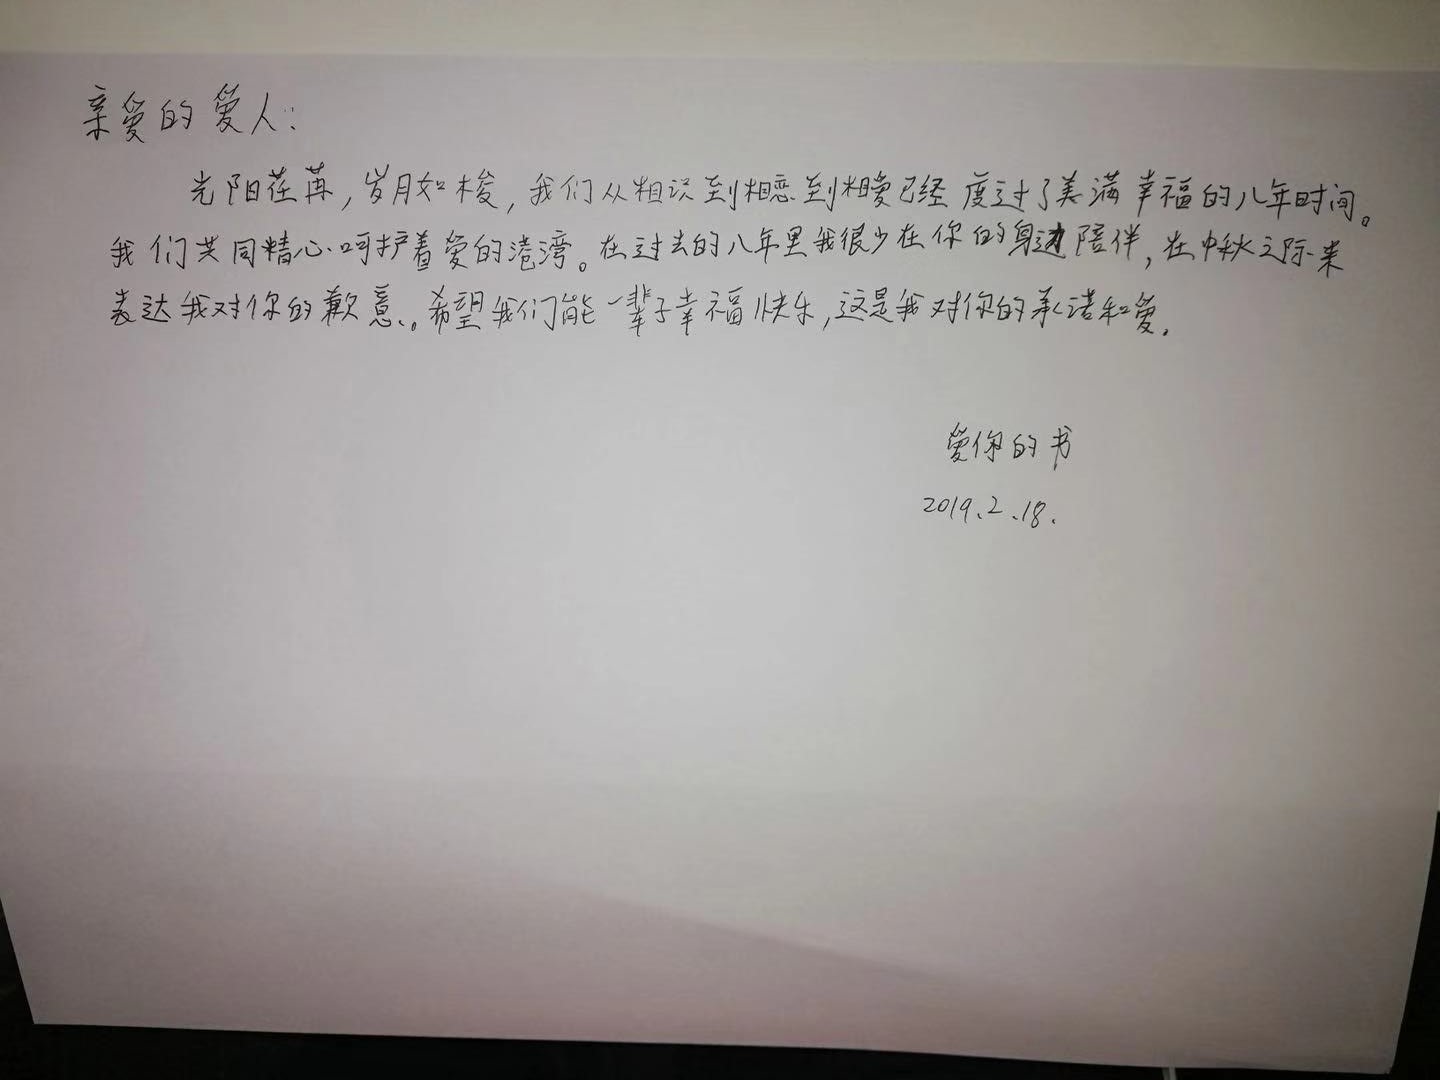 亲爱的爱人：
光阳荏苒，岁月如梭，我们从相识到相恋到相爱已经度过了美满幸福的八年时间。
我们共同精心呵护着爱的港湾。在过去的八年里我很少在你的身边陪伴，在中秋之际来
表达我对你的歉意。希望我们能一辈子幸福快乐，这是我对你的承诺和爱.
爱你的书
2019.2.18.